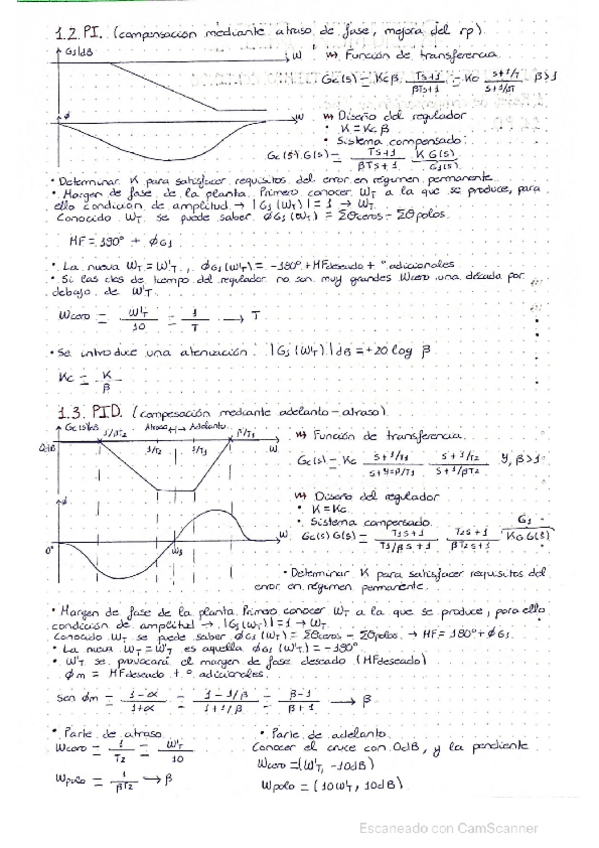 1.2. PI. (compensación mediante atraso de fase, mejora del rp)
G₁/dB
W
⇝ Función de transferencia
Gc(s) = Kcβ (Ts+1)/(βTs+1) = Kc (s+1/T)/(s+1/βT) β>1
ϕ
W
⇝ Diseño del regulador
• K = Kcβ
• Sistema compensado:
Gc(s)·G(s) = (Ts+1)/(βTs+1) · K G(s)
G₁(s)
• Determinar K para satisfacer requisitos del error en régimen permanente.
• Margen de fase de la planta. Primero conocer WT a la que se produce, para
ello condición de amplitud → |G₁(WT)| = 1 → WT.
Conocido WT se puede saber ϕG₁(WT) = Σθceros - Σθpolos.
MF = 180° + ϕG₁
• La nueva WT = W'T, ϕG₁(W'T) = -180° + MFdeseado + ° adicionales
• Si las ctes de tiempo del regulador no son muy grandes Wcero una década por
debajo de W'T.
Wcero = W'T/10 = 1/T → T
• Se introduce una atenuación |G₁(W'T)|dB = +20 log β
Kc = K/β
1.3. PID. (compesación mediante adelanto-atraso)
Gc(s)dB
Atraso ←|→ Adelanto
0dB
1/βT₂
1/T₂
1/T₁
β/T₁
W
⇝ Función de transferencia
Gc(s) = Kc (s+1/T₁)/(s+γ=β/T₁) (s+1/T₂)/(s+1/βT₂) γ, β>1
ϕ
0°
W₁
W
⇝ Diseño del regulador
• K = Kc
• Sistema compensado.
Gc(s)G(s) = (T₁s+1)/(T₁/β s+1) · (T₂s+1)/(βT₂s+1)
G₁
• Determinar K para satisfacer requisitos del
error en régimen permanente.
• Margen de fase de la planta. Primero conocer WT a la que se produce, para ello
condición de amplitud → |G₁(WT)| = 1 → WT.
Conocido WT se puede saber ϕG₁(WT) = Σθceros - Σθpolos. → MF = 180° + ϕG₁
• La nueva WT = W'T es aquella ϕG₁(W'T) = -180°
• W'T se provocará el margen de fase deseado (MFdeseado)
ϕm = MFdeseado + ° adicionales.
sen ϕm = (1-α)/(1+α) = (1-1/β)/(1+1/β) = (β-1)/(β+1) → β
• Parte de atraso
Wcero = 1/T₂ = W'T/10
Wpolo = 1/βT₂ → β
• Parte de adelanto
Conocer el cruce con 0dB, y la pendiente
Wcero = (W'T, -10dB)
Wpolo = (10W'T, 10dB)
Escaneado con CamScanner